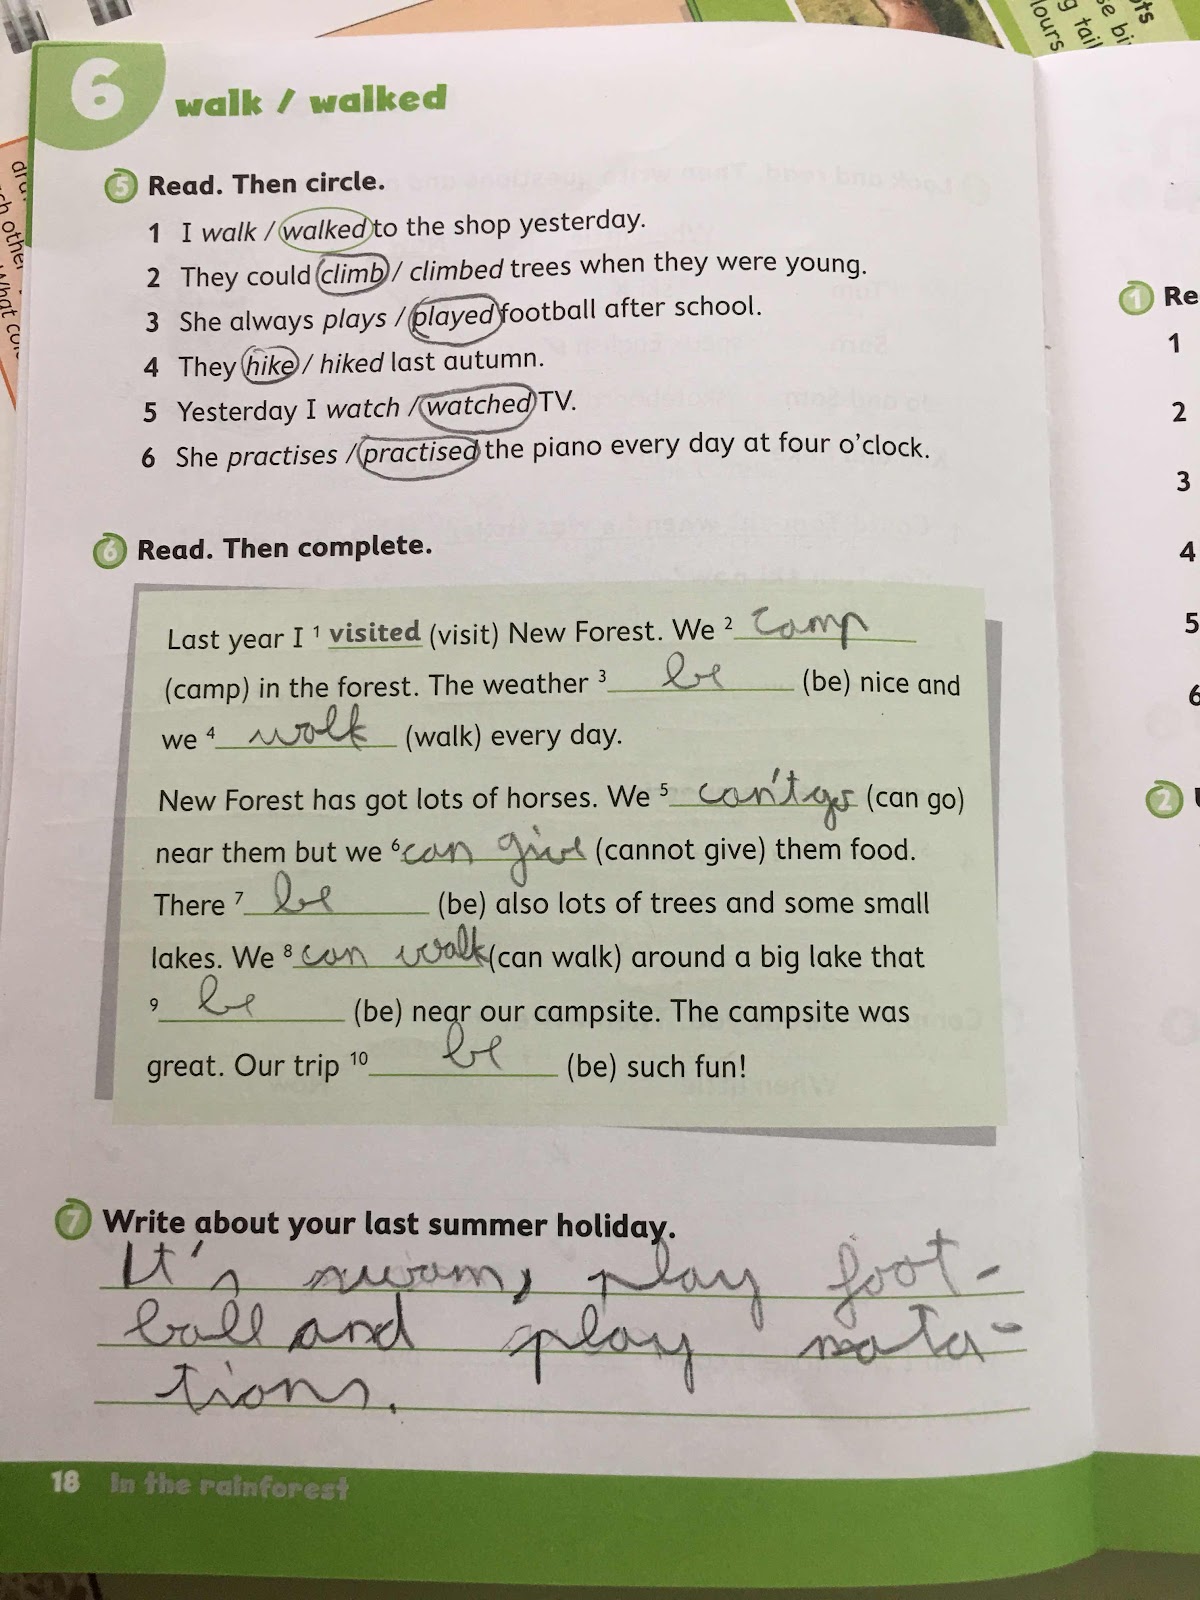 6 walk / walked
5 Read. Then circle.
1 I walk / walked to the shop yesterday.
2 They could climb / climbed trees when they were young.
3 She always plays / played football after school.
4 They hike / hiked last autumn.
5 Yesterday I watch / watched TV.
6 She practises / practised the piano every day at four o'clock.
6 Read. Then complete.
Last year I 1 visited (visit) New Forest. We 2 camp
(camp) in the forest. The weather 3 be (be) nice and
we 4 walk (walk) every day.
New Forest has got lots of horses. We 5 can't go (can go)
near them but we 6 can give (cannot give) them food.
There 7 be (be) also lots of trees and some small
lakes. We 8 can walk (can walk) around a big lake that
9 be (be) near our campsite. The campsite was
great. Our trip 10 be (be) such fun!
7 Write about your last summer holiday.
It's swam, play foot-
ball and play nata-
tions.
18 In the rainforest
1 Re
1
2
3
4
5
6
2